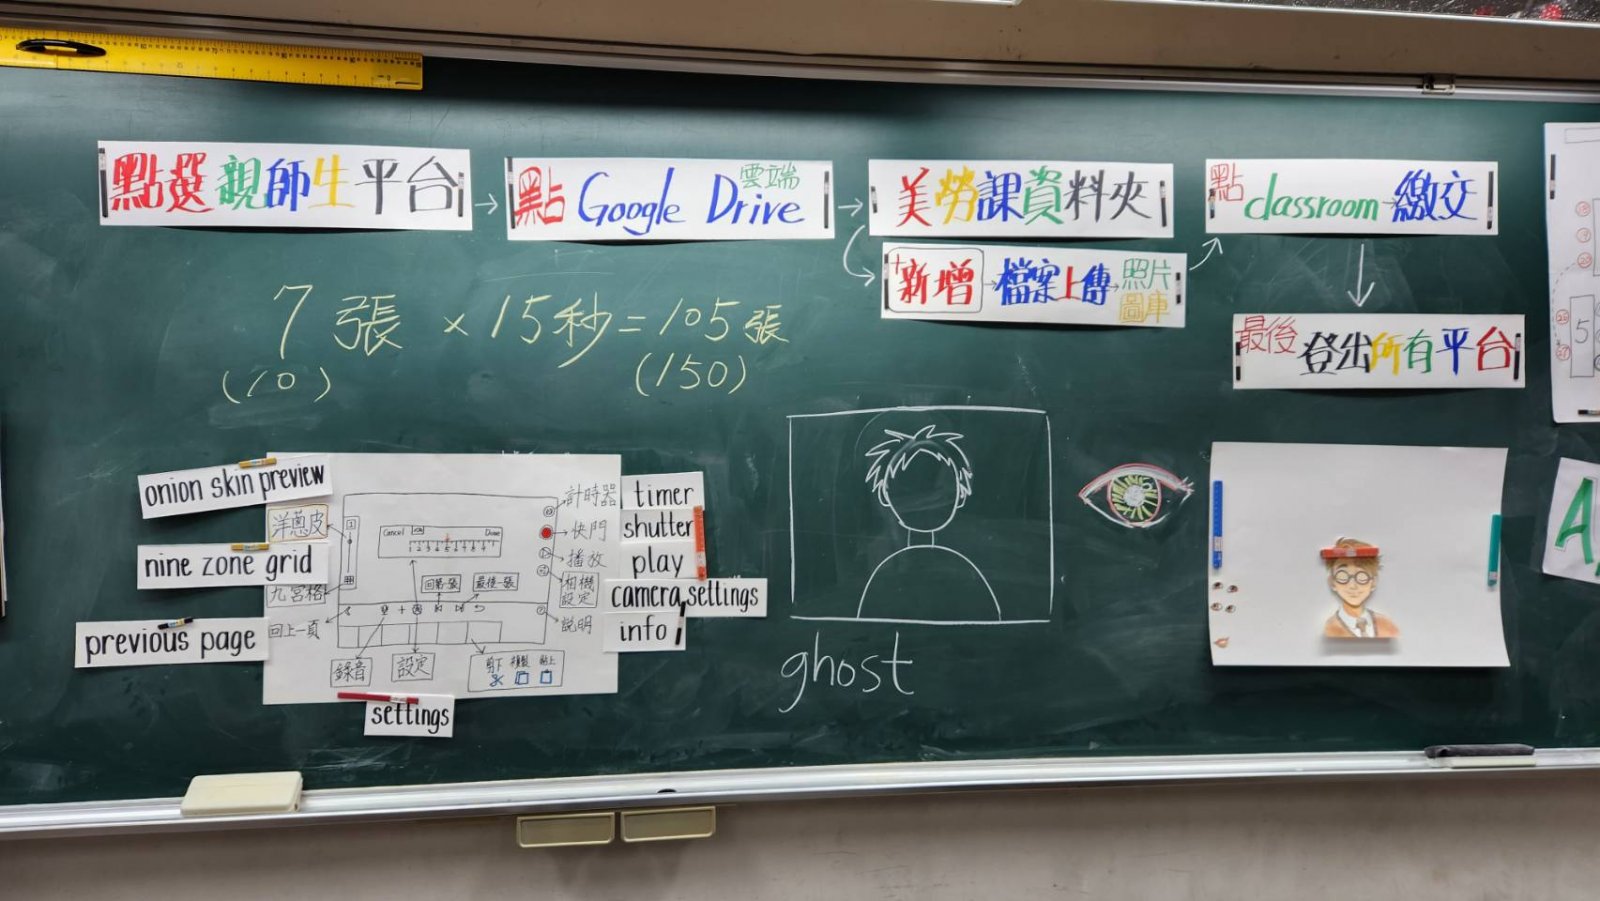 點選親師生平台
點 Google Drive 雲端
美勞課資料夾
點 classroom 繳交
+新增 檔案上傳 照片圖庫
最後 登出所有平台
7張 × 15秒 = 105張
(10) (150)
onion skin preview
洋蔥皮
nine zone grid
九宮格
previous page
回上一頁
Cancel
Done
回第一張
最後一張
錄音
設定
剪下 複製 貼上
settings
計時器 timer
快門 shutter
播放 play
相機設定 camera settings
說明 info
ghost
5
A